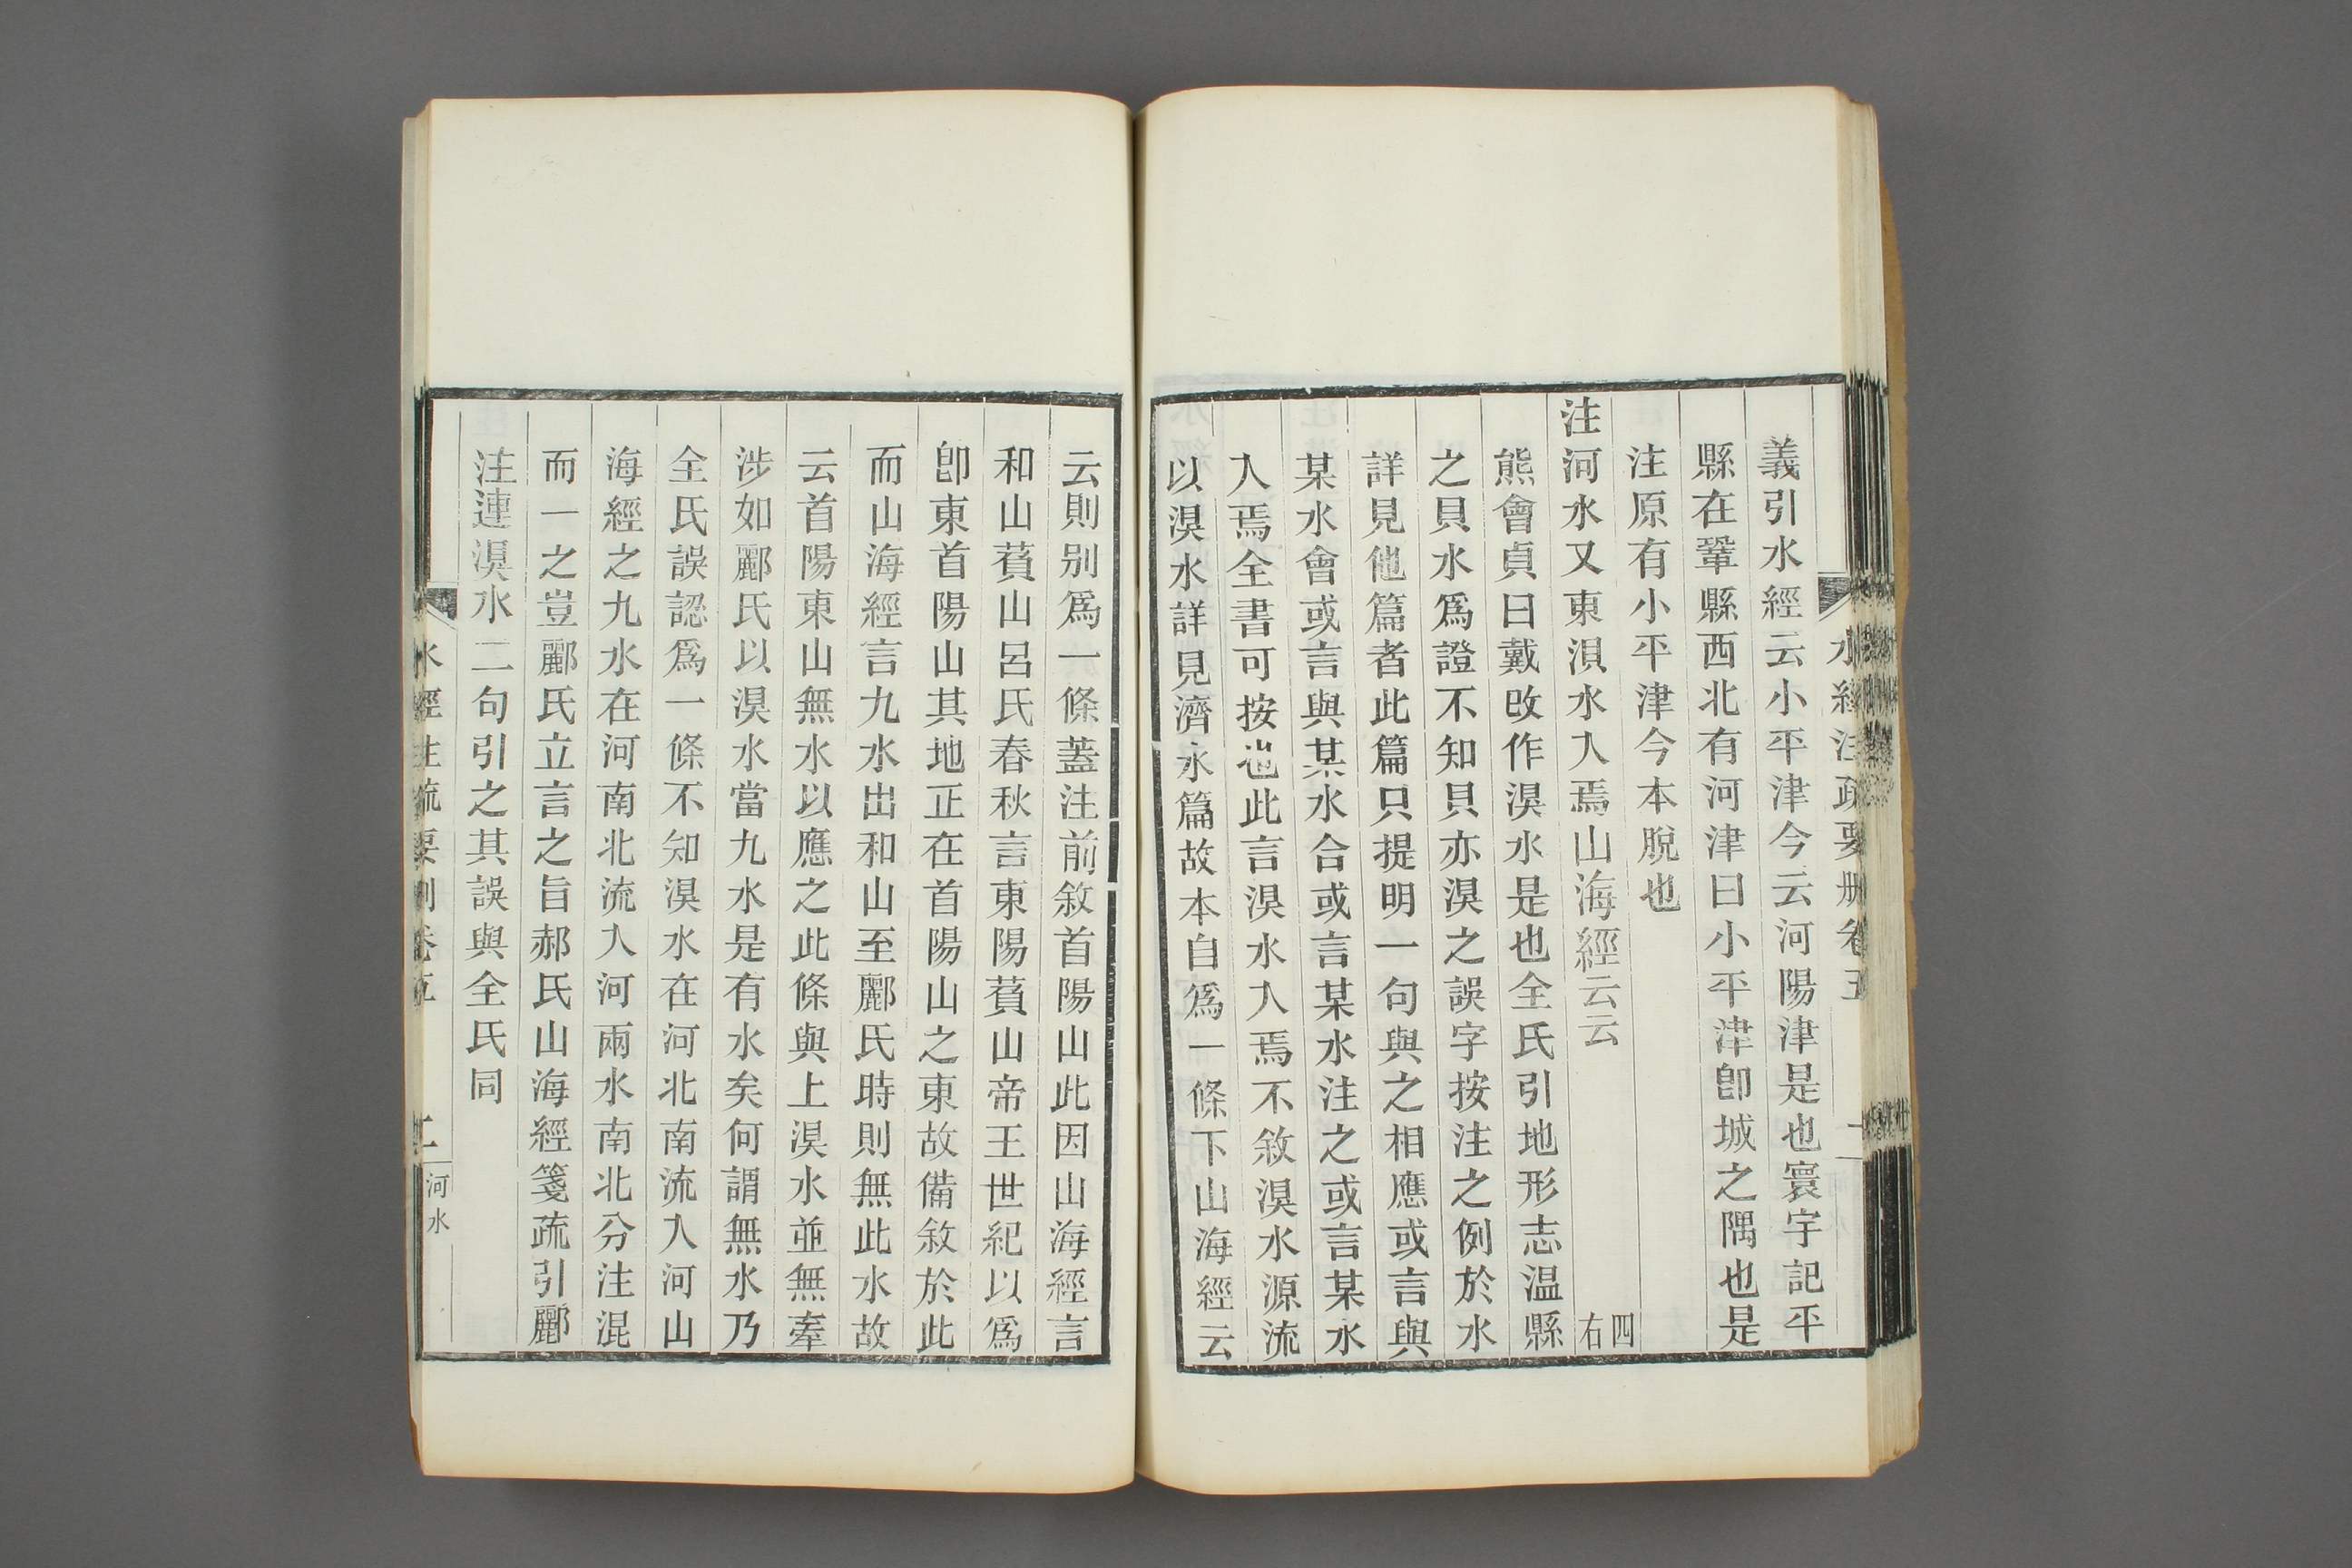 水經注疏要刪卷五
義引水經云小平津今云河陽津是也寰宇記平
縣在鞏縣西北有河津曰小平津卽城之隅也是
注原有小平津今本脫也
注河水又東湨水入焉山海經云云 四右
熊會貞曰戴改作湨水是也全氏引地形志温縣
之貝水爲證不知貝亦湨之誤字按注之例於水
詳見他篇者此篇只提明一句與之相應或言與
某水會或言與某水合或言某水注之或言某水
入焉全書可按也此言湨水入焉不敘湨水源流
以湨水詳見濟水篇故本自爲一條下山海經云
云則別爲一條蓋注前敘首陽山此因山海經言
和山萯山呂氏春秋言東陽萯山帝王世紀以爲
卽東首陽山其地正在首陽山之東故備敘於此
而山海經言九水出和山至酈氏時則無此水故
云首陽東山無水以應之此條與上湨水並無牽
涉如酈氏以湨水當九水是有水矣何謂無水乃
全氏誤認爲一條不知湨水在河北南流入河山
海經之九水在河南北流入河兩水南北分注混
而一之豈酈氏立言之旨郝氏山海經箋疏引酈
注連湨水二句引之其誤與全氏同
水經注疏要刪卷五 二 河水